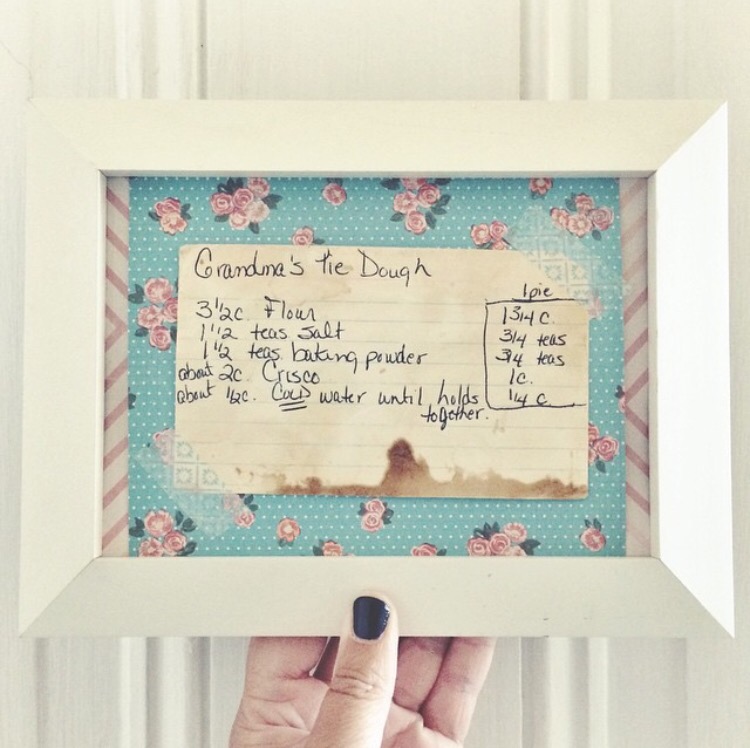 Grandma's Pie Dough
3 1/2 c. Flour
1 1/2 teas salt
1 1/2 teas. baking powder
about 2c. Crisco
about 1/2c. COLD water until holds
together.
1 pie
1 3/4 c.
3/4 teas
3/4 teas
1c.
1/4 c